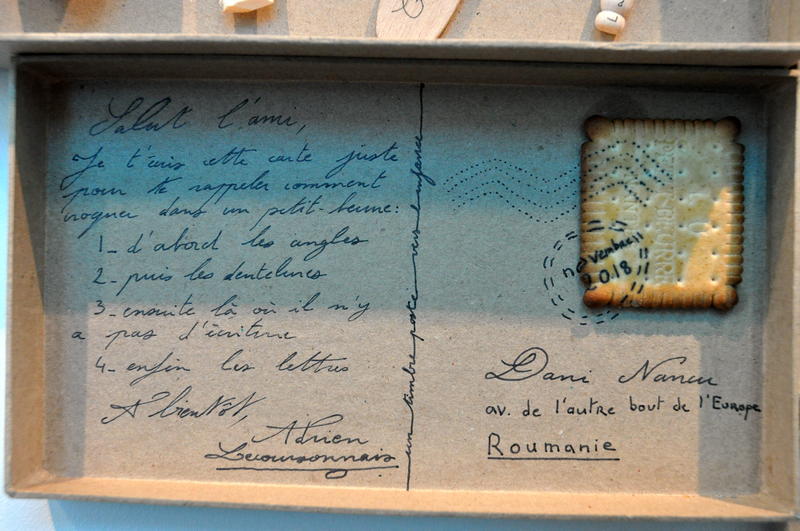 Salut l'ami,
Je t'écris cette carte juste
pour te rappeler comment
croquer dans un petit-beurre:
1_ d'abord les angles
2_ puis les dentelures
3_ ensuite là où il n'y
a pas d'écriture
4_ enfin les lettres
A bientôt,
Adrien
Lecoursonnais
un timbre poste vers l'enfance
novembre
2018
Dani Nancu
av. de l'autre bout de l'Europe
Roumanie